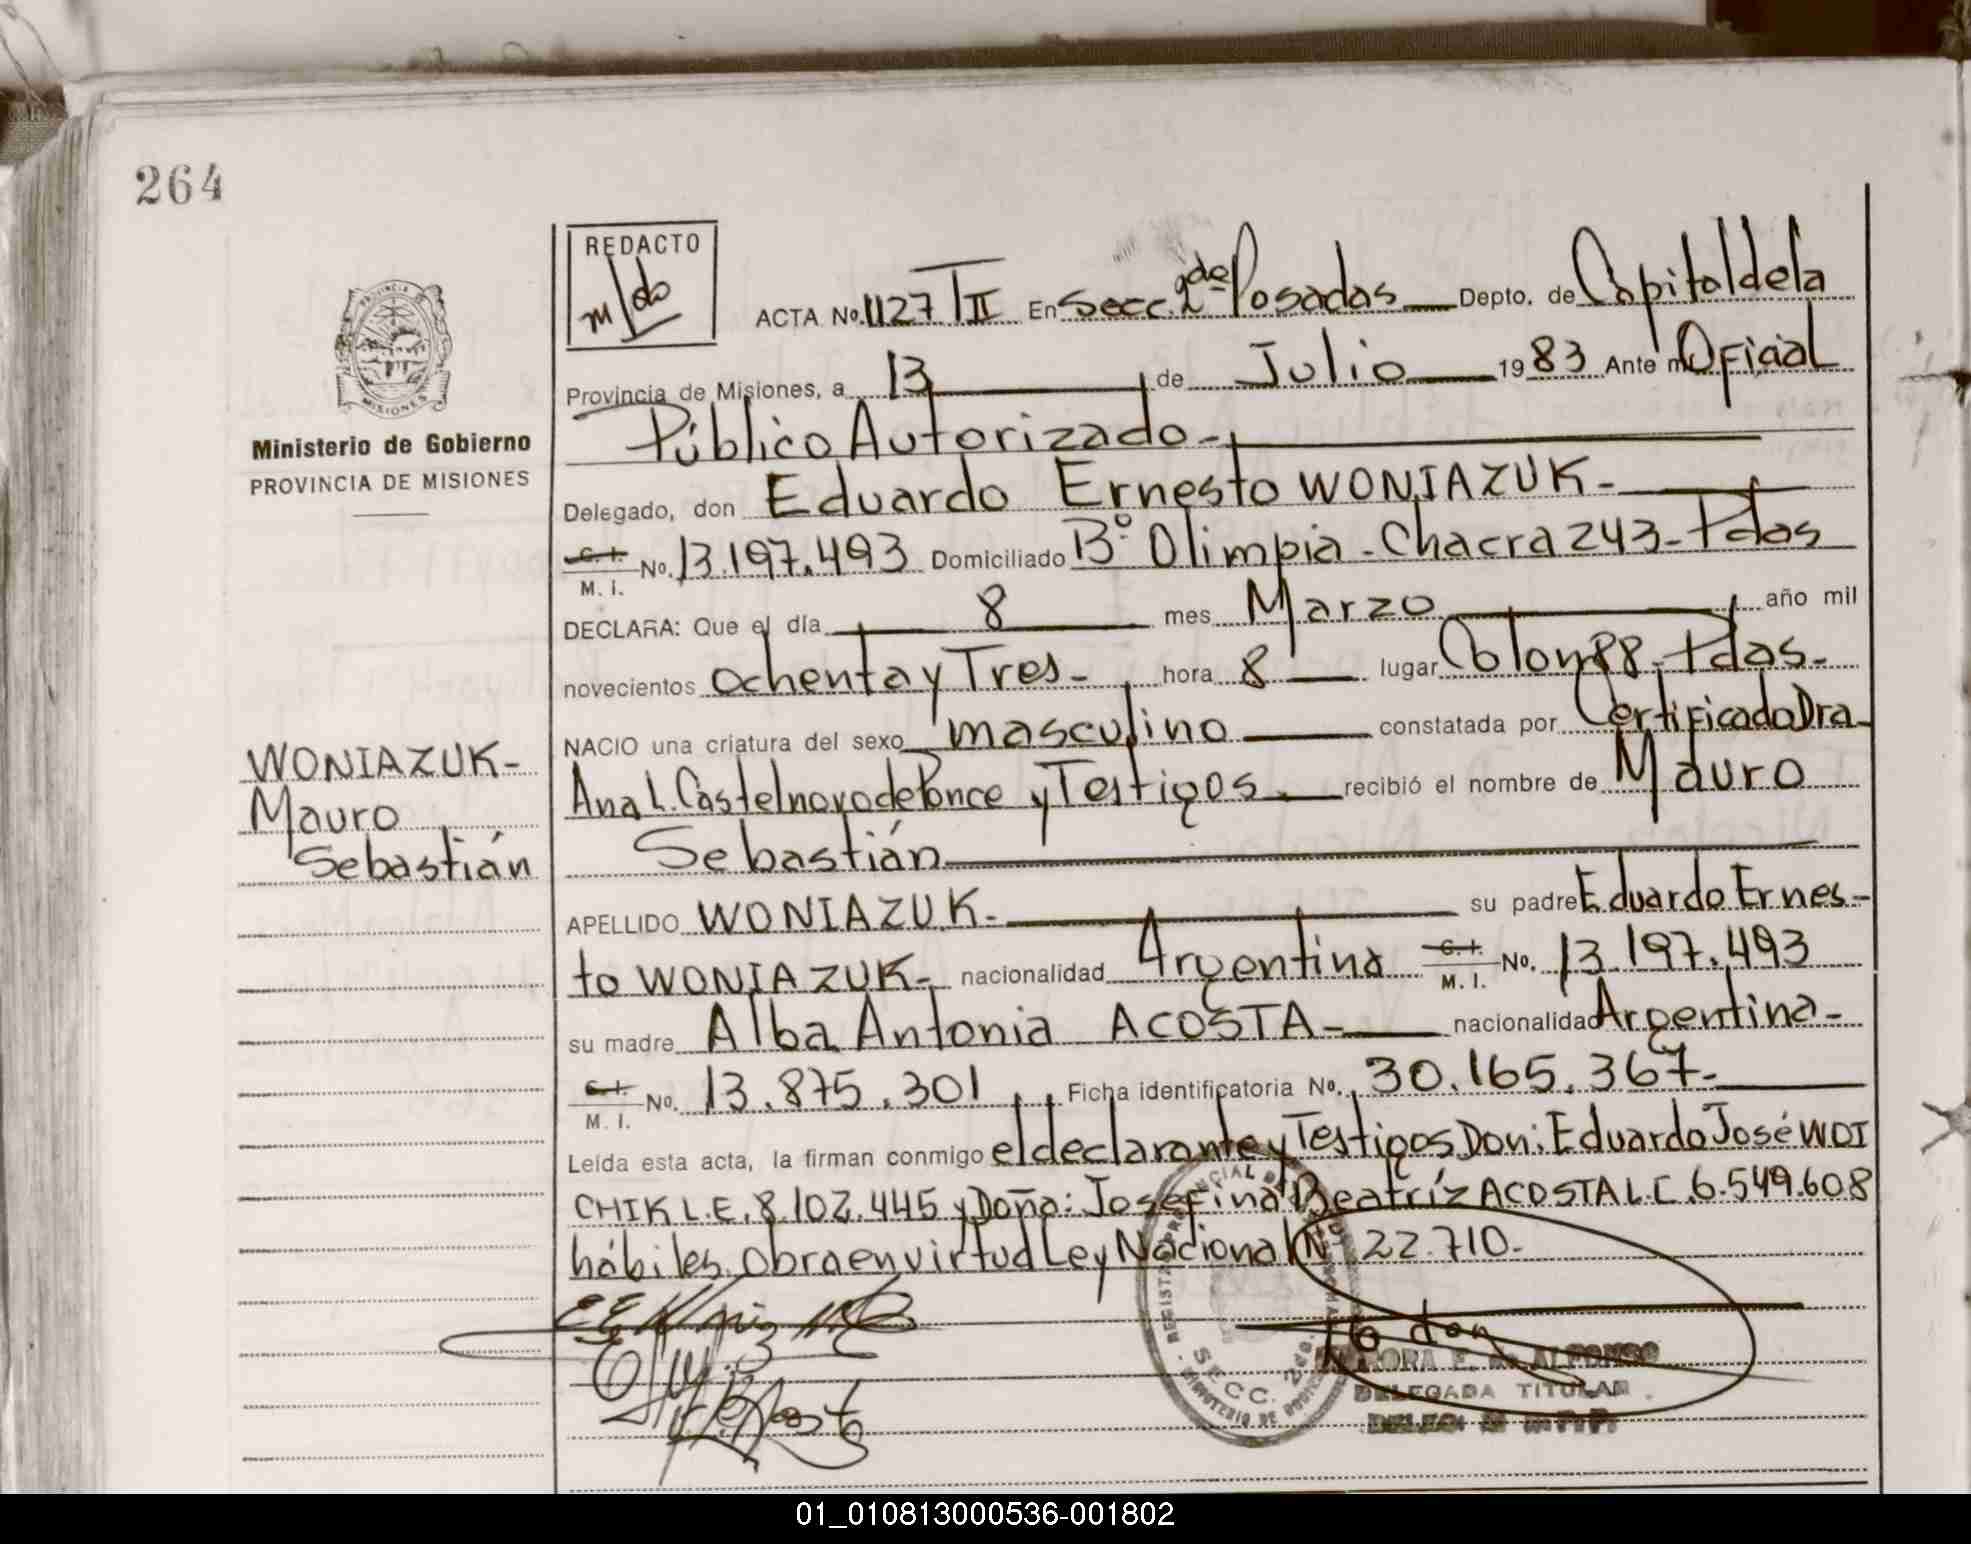 264
REDACTO
ACTA No. 1127 TII En Secc. 2da Posadas Depto. de Capital de la
Provincia de Misiones, a 13 de Julio 1983 Ante mi Oficial
Público Autorizado-
Ministerio de Gobierno
PROVINCIA DE MISIONES
Delegado, don Eduardo Ernesto WONIAZUK-
C. I. M. I. No. 13.197.493 Domiciliado Bº Olimpia - Chacra 243 - Pdas
DECLARA: Que el día 8 mes Marzo año mil
novecientos ochenta y Tres- hora 8 lugar Colon 88 - Pdas.-
NACIO una criatura del sexo masculino constatada por Certificado Dra
Ana L. Castelnovo de Ponce y Testigos. recibió el nombre de Mauro
Sebastián
WONIAZUK-
Mauro
Sebastián
APELLIDO WONIAZUK- su padre Eduardo Ernes-
to WONIAZUK- nacionalidad Argentina C. I. M. I. No. 13.197.493
su madre Alba Antonia ACOSTA- nacionalidad Argentina-
C. I. M. I. No. 13.875.301 Ficha identificatoria No. 30.165.367-
Leída esta acta, la firman conmigo el declarante y Testigos Don: Eduardo José WOI
CHIK L.E. 8.102.445 y Doña: Josefina Beatríz ACOSTA L.C. 6.549.608
hábiles. Obra en virtud Ley Nacional Nº 22.710-
SECC. 2da.
ALFONSO
DELEGADA TITULAR
01_010813000536-001802